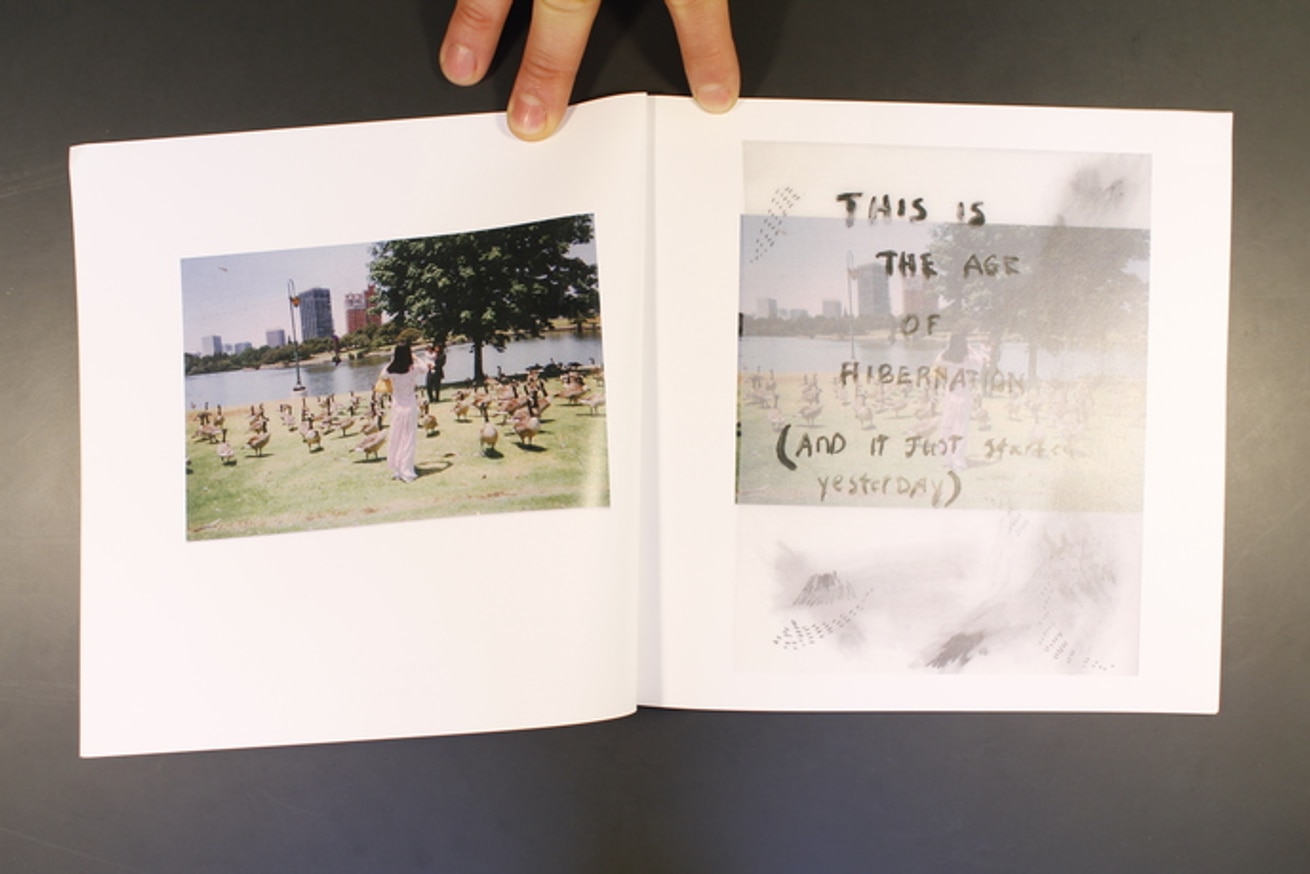 THIS IS
THE AGE
OF
HIBERNATION
(AND IT JUST started
yesterDAY)